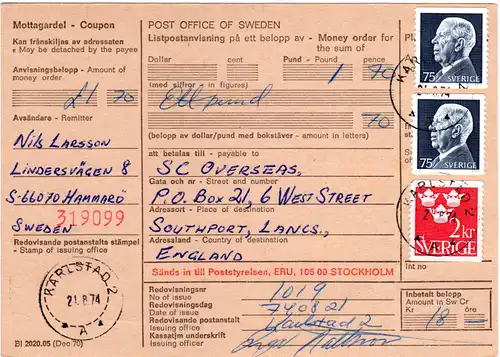 Mottagardel - Coupon
Kan frånskiljas av adressaten
- May be detached by the payee
Anvisningsbelopp - Amount of
money order
£1 70
Avsändare - Remitter
Nils Larsson
Lindersvägen 8
S-66070 Hammarö
319099
Sweden
Redovisande postanstalts stämpel
- Stamp of issuing office
KARLSTAD 2
21.8.74
A
BI 2020.05 (Dec 70)
POST OFFICE OF SWEDEN
Listpostanvisning på ett belopp av - Money order for
the sum of
Dollar cent Pund - Pound Pence
1 70
(med siffror - in figures)
Ett pund
70
(belopp av dollar/pund med bokstäver - amount in letters)
att betalas till - payable to
SC Overseas,
Gata och nr - Street and number
P.O. Box 21, 6 West Street
Adressort - Place of destination
Southport, Lancs.,
Adressland - Country of destination
England
Sänds in till Poststyrelsen, ERU, 105 00 STOCKHOLM
Redovisningsnr
No of issue
1019
Redovisningsdag
Date of issue
740821
Redovisande postanstalt
Issuing office
Karlstad 2
Kassatjm underskrift
Signature of issuing officer
75 SVERIGE
75 SVERIGE
2 kr
SVERIGE
KARLSTAD 2
21.8.74
Int no
Inbetalt belopp
Amount in Sw Cr
Kr öre
18 —